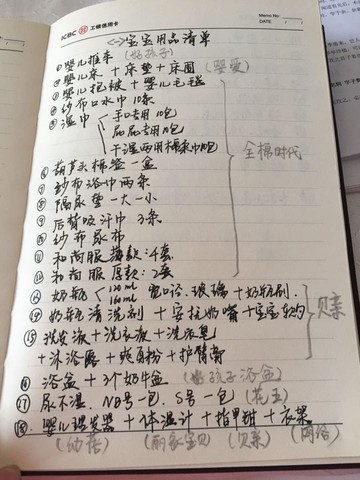 ICBC 工银信用卡
Memo No.
DATE / /
<一>宝宝用品清单
①婴儿推车 (好孩子)
②婴儿床 + 床垫 + 床围 (婴爱)
③婴儿抱被 + 婴儿毛毯
④纱布口水巾 10条
⑤湿巾 手口专用10包
屁屁专用10包
干湿两用棉柔巾10包
全棉时代
⑥葫芦头棉签一盒
⑦纱布浴巾两条
⑧隔尿垫一大一小
⑨后背吸汗巾 3条
⑩纱布尿布
⑪和尚服薄款:4套
⑫和尚服厚款:2套
⑬奶瓶 120ml 160ml 宽口径.玻璃 + 奶瓶刷.
⑭奶瓶清洗剂 + 安抚奶嘴 + 宝宝
贝亲
⑮洗发液 + 洗衣液 + 洗衣皂
+ 沐浴露 + 爽身粉 + 护臀膏
⑯浴盆 + 3个奶牛盆 (好孩子浴盆)
⑰尿不湿. NB号一包. S号一包 (花王)
⑱.婴儿理发器 + 体温计 + 指甲钳 + 衣架
(丽家宝贝) (贝亲) (网络)